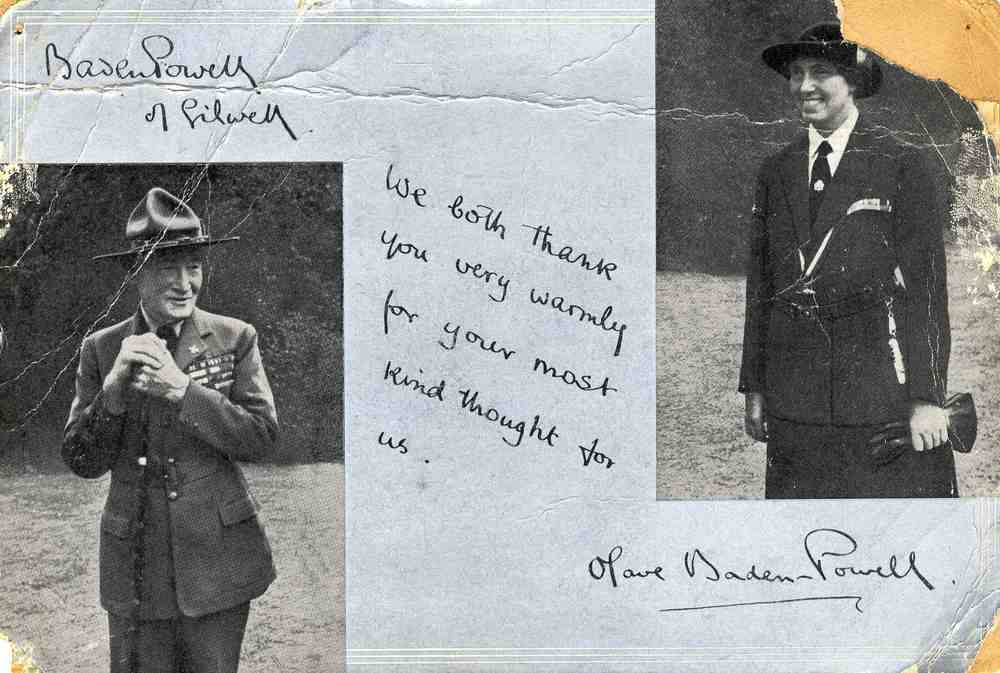 Baden Powell
of Gilwell.
We both thank
you very warmly
for your most
kind thought for
us.
Olave Baden-Powell.